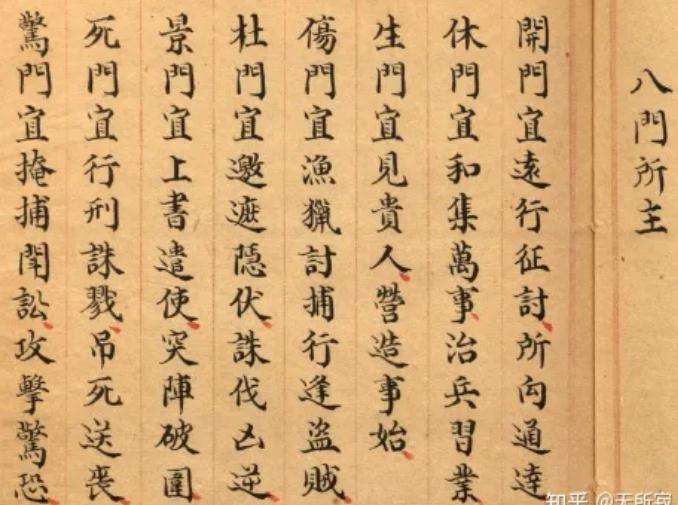 八門所主
開門宜遠行征討所向通達
休門宜和集萬事治兵習業
生門宜見貴人營造事始
傷門宜漁獵討捕行逢盜賊
杜門宜邀遮隱伏誅伐凶逆
景門宜上書遣使突陣破圍
死門宜行刑誅戮吊死送喪
驚門宜掩捕鬥訟攻擊驚恐
知乎 @无所寂